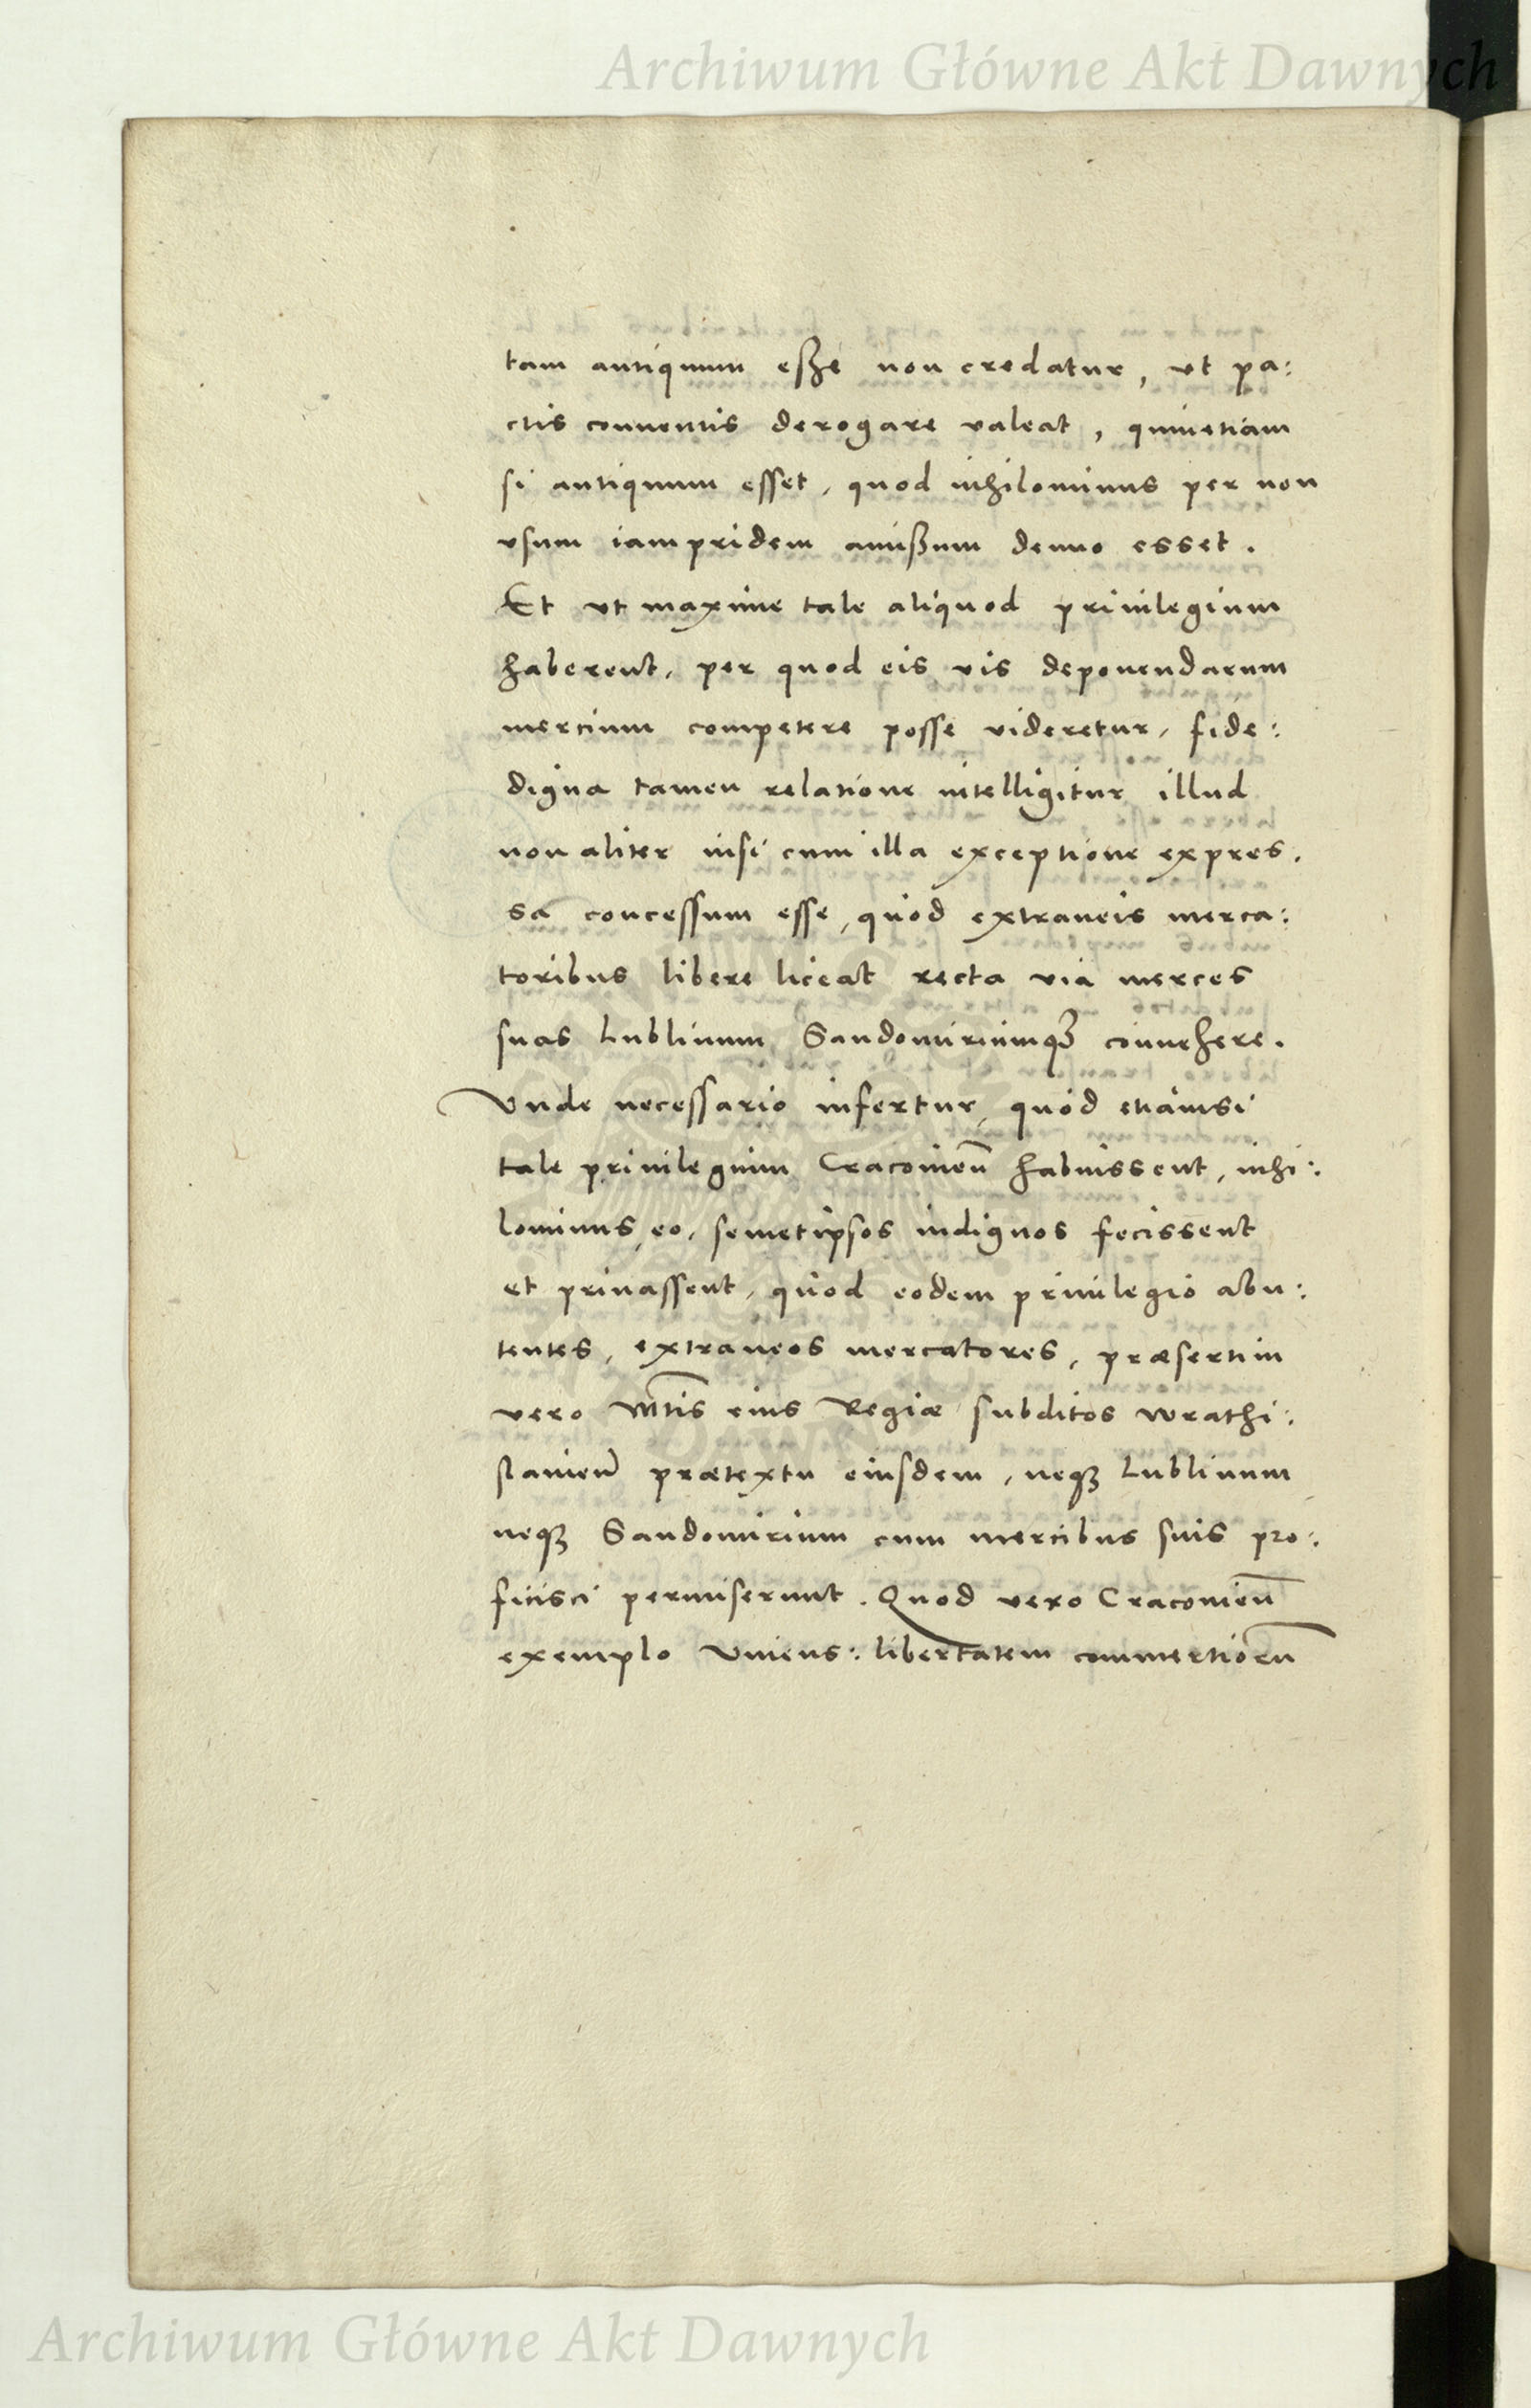 Archiwum Główne Akt Dawnych
tam antiquum eße non credatur, vt pa:
ctis conuentis derogare valeat, quinetiam
si antiquum esset, quod nihilominus per non
vsum iampridem amißum denuo esset.
Et vt maxime tale aliquod priuilegium
haberent, per quod eis vis deponendarum
mercium competere posse videretur, fide:
digna tamen relatione intelligitur illud
non aliter nisi cum illa exceptione expres.
sa concessum esse, quod extraneis merca:
toribus libere liceat recta via merces
suas Lublinum Sandomiriumqꝫ conuehere.
Vnde necessario infertur, quod etiamsi
tale priuilegium Cracouien̄ habuissent, nihi:
lominus eo, semetipsos indignos fecissent
et priuassent, quod eodem priuilegio abu:
tentes, extraneos mercatores, præsertim
vero Mtis eius Regiæ subditos wrathi:
slauien̄ prætextu eiusdem, neqꝫ Lublinum
neqꝫ Sandomirium cum mercibus suis pro:
ficisci permiserunt. Quod vero Cracouien̄
exemplo Vniens: libertatem commertiorū
Archiwum Główne Akt Dawnych